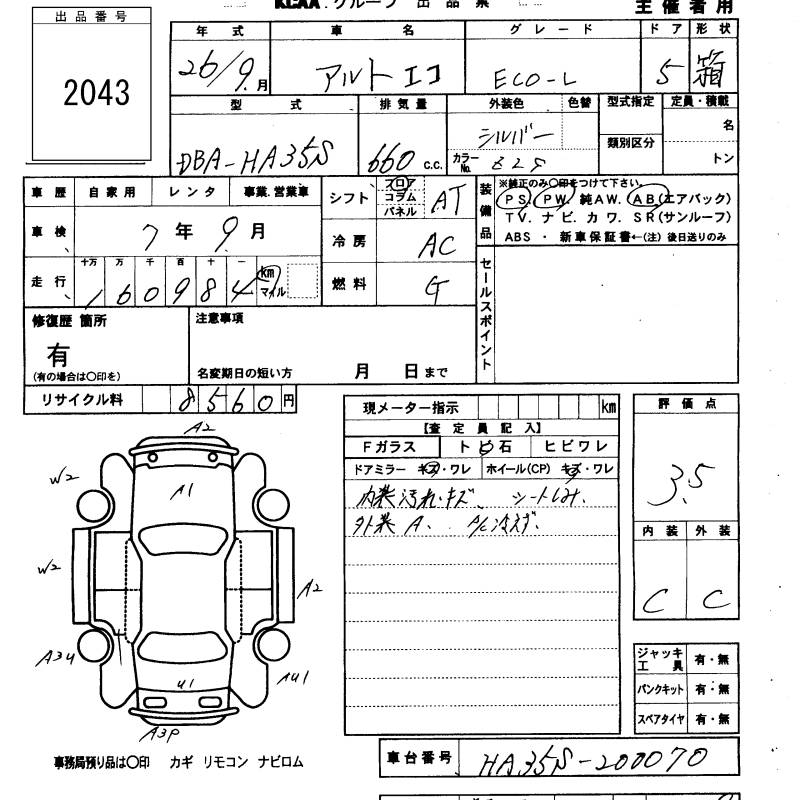 KCAA グループ 出品票
主催者用
出品番号
2043
年式 車名 グレード ドア 形状
26/9月 アルト エコ ECO-L 5 箱
型式 排気量 外装色 色替 型式指定 定員・積載
DBA-HA35S 660 c.c. シルバー 類別区分 名
カラーNo. トン
車歴 自家用 レンタ 事業.営業車
車検 7年9月
走行 十万 万 千 百 十 一
160984 km マイル
シフト フロア コラム パネル AT
冷房 AC
燃料 G
装備品 ※純正のみ〇印をつけて下さい。
PS. PW. 純AW. AB(エアバック)
TV. ナビ. カワ. SR(サンルーフ)
ABS ・ 新車保証書←(注) 後日送りのみ
セールスポイント
修復歴 箇所
有
(有の場合は〇印を)
注意事項
名変期日の短い方 月 日まで
リサイクル料 8560円
現メーター指示 km
【査定員記入】
Fガラス トビ石 ヒビワレ
ドアミラー キズ・ワレ ホイール(CP) キズ・ワレ
内装汚れ・キズ、シートしみ.
外装A. A/C冷えず.
評価点
3.5
内装 外装
C C
A2
W2
A1
W2
A2
A3U
U1
AU1
A3P
ジャッキ工具 有・無
パンクキット 有・無
スペアタイヤ 有・無
事務局預り品は〇印 カギ リモコン ナビロム
車台番号 HA35S-200070